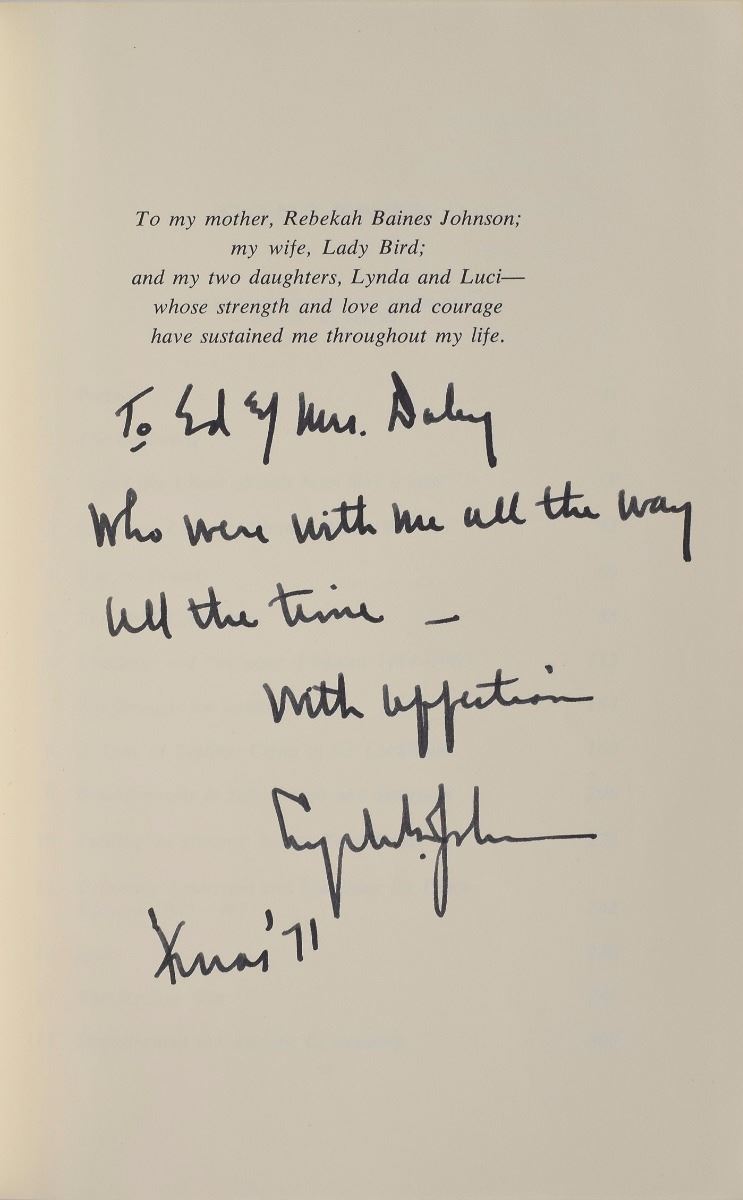 To my mother, Rebekah Baines Johnson;
my wife, Lady Bird;
and my two daughters, Lynda and Luci—
whose strength and love and courage
have sustained me throughout my life.
To Ed & Mrs. Daley
Who were with me all the way
all the time —
With affection
Lyndon B. Johnson
Xmas '71